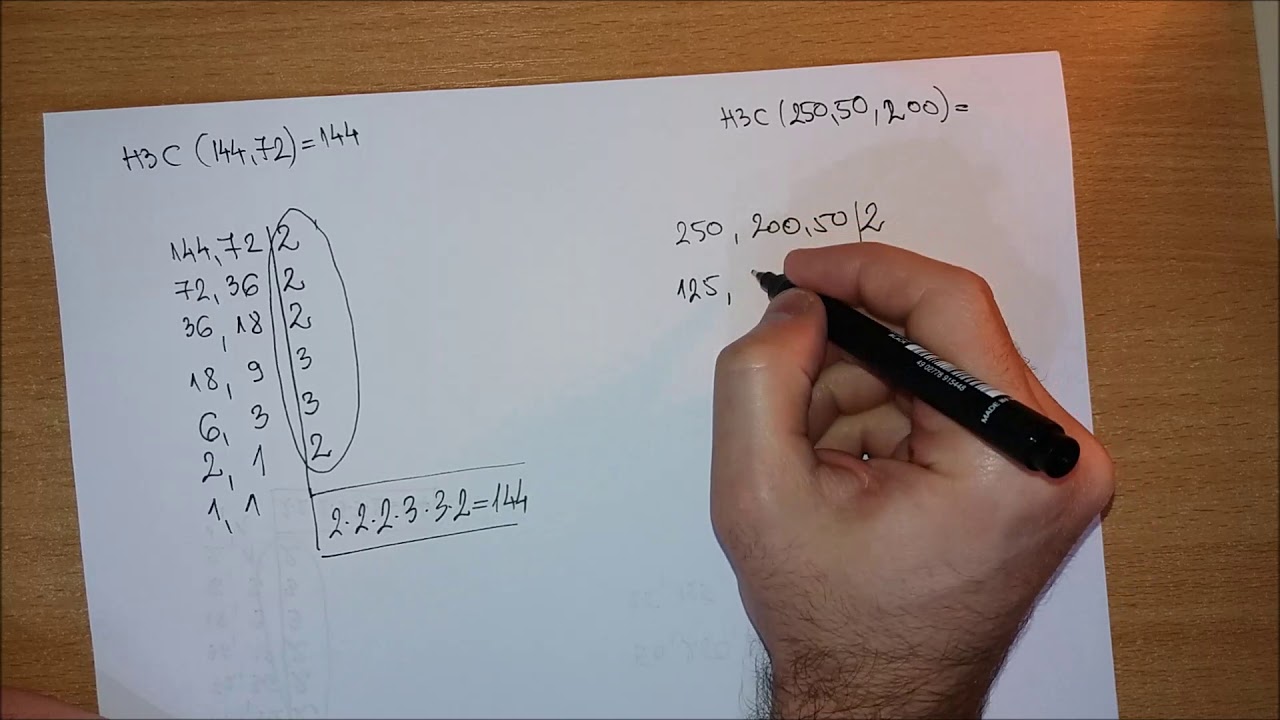 НЗС (144,72)=144
144,72|2
72,36|2
36,18|2
18,9|3
6,3|3
2,1|2
1,1
2·2·2·3·3·2=144
НЗС (250,50,200)=
250,200,50|2
125,
49 02778 915448